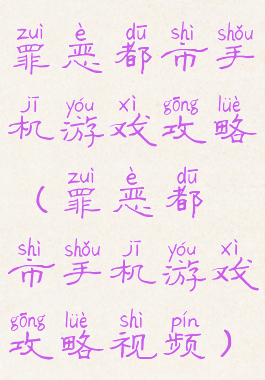 zuì è dū shì shǒu
罪恶都市手
jī yóu xì gōng lüè
机游戏攻略
zuì è dū
（罪恶都
shì shǒu jī yóu xì
市手机游戏
gōng lüè shì pín
攻略视频）